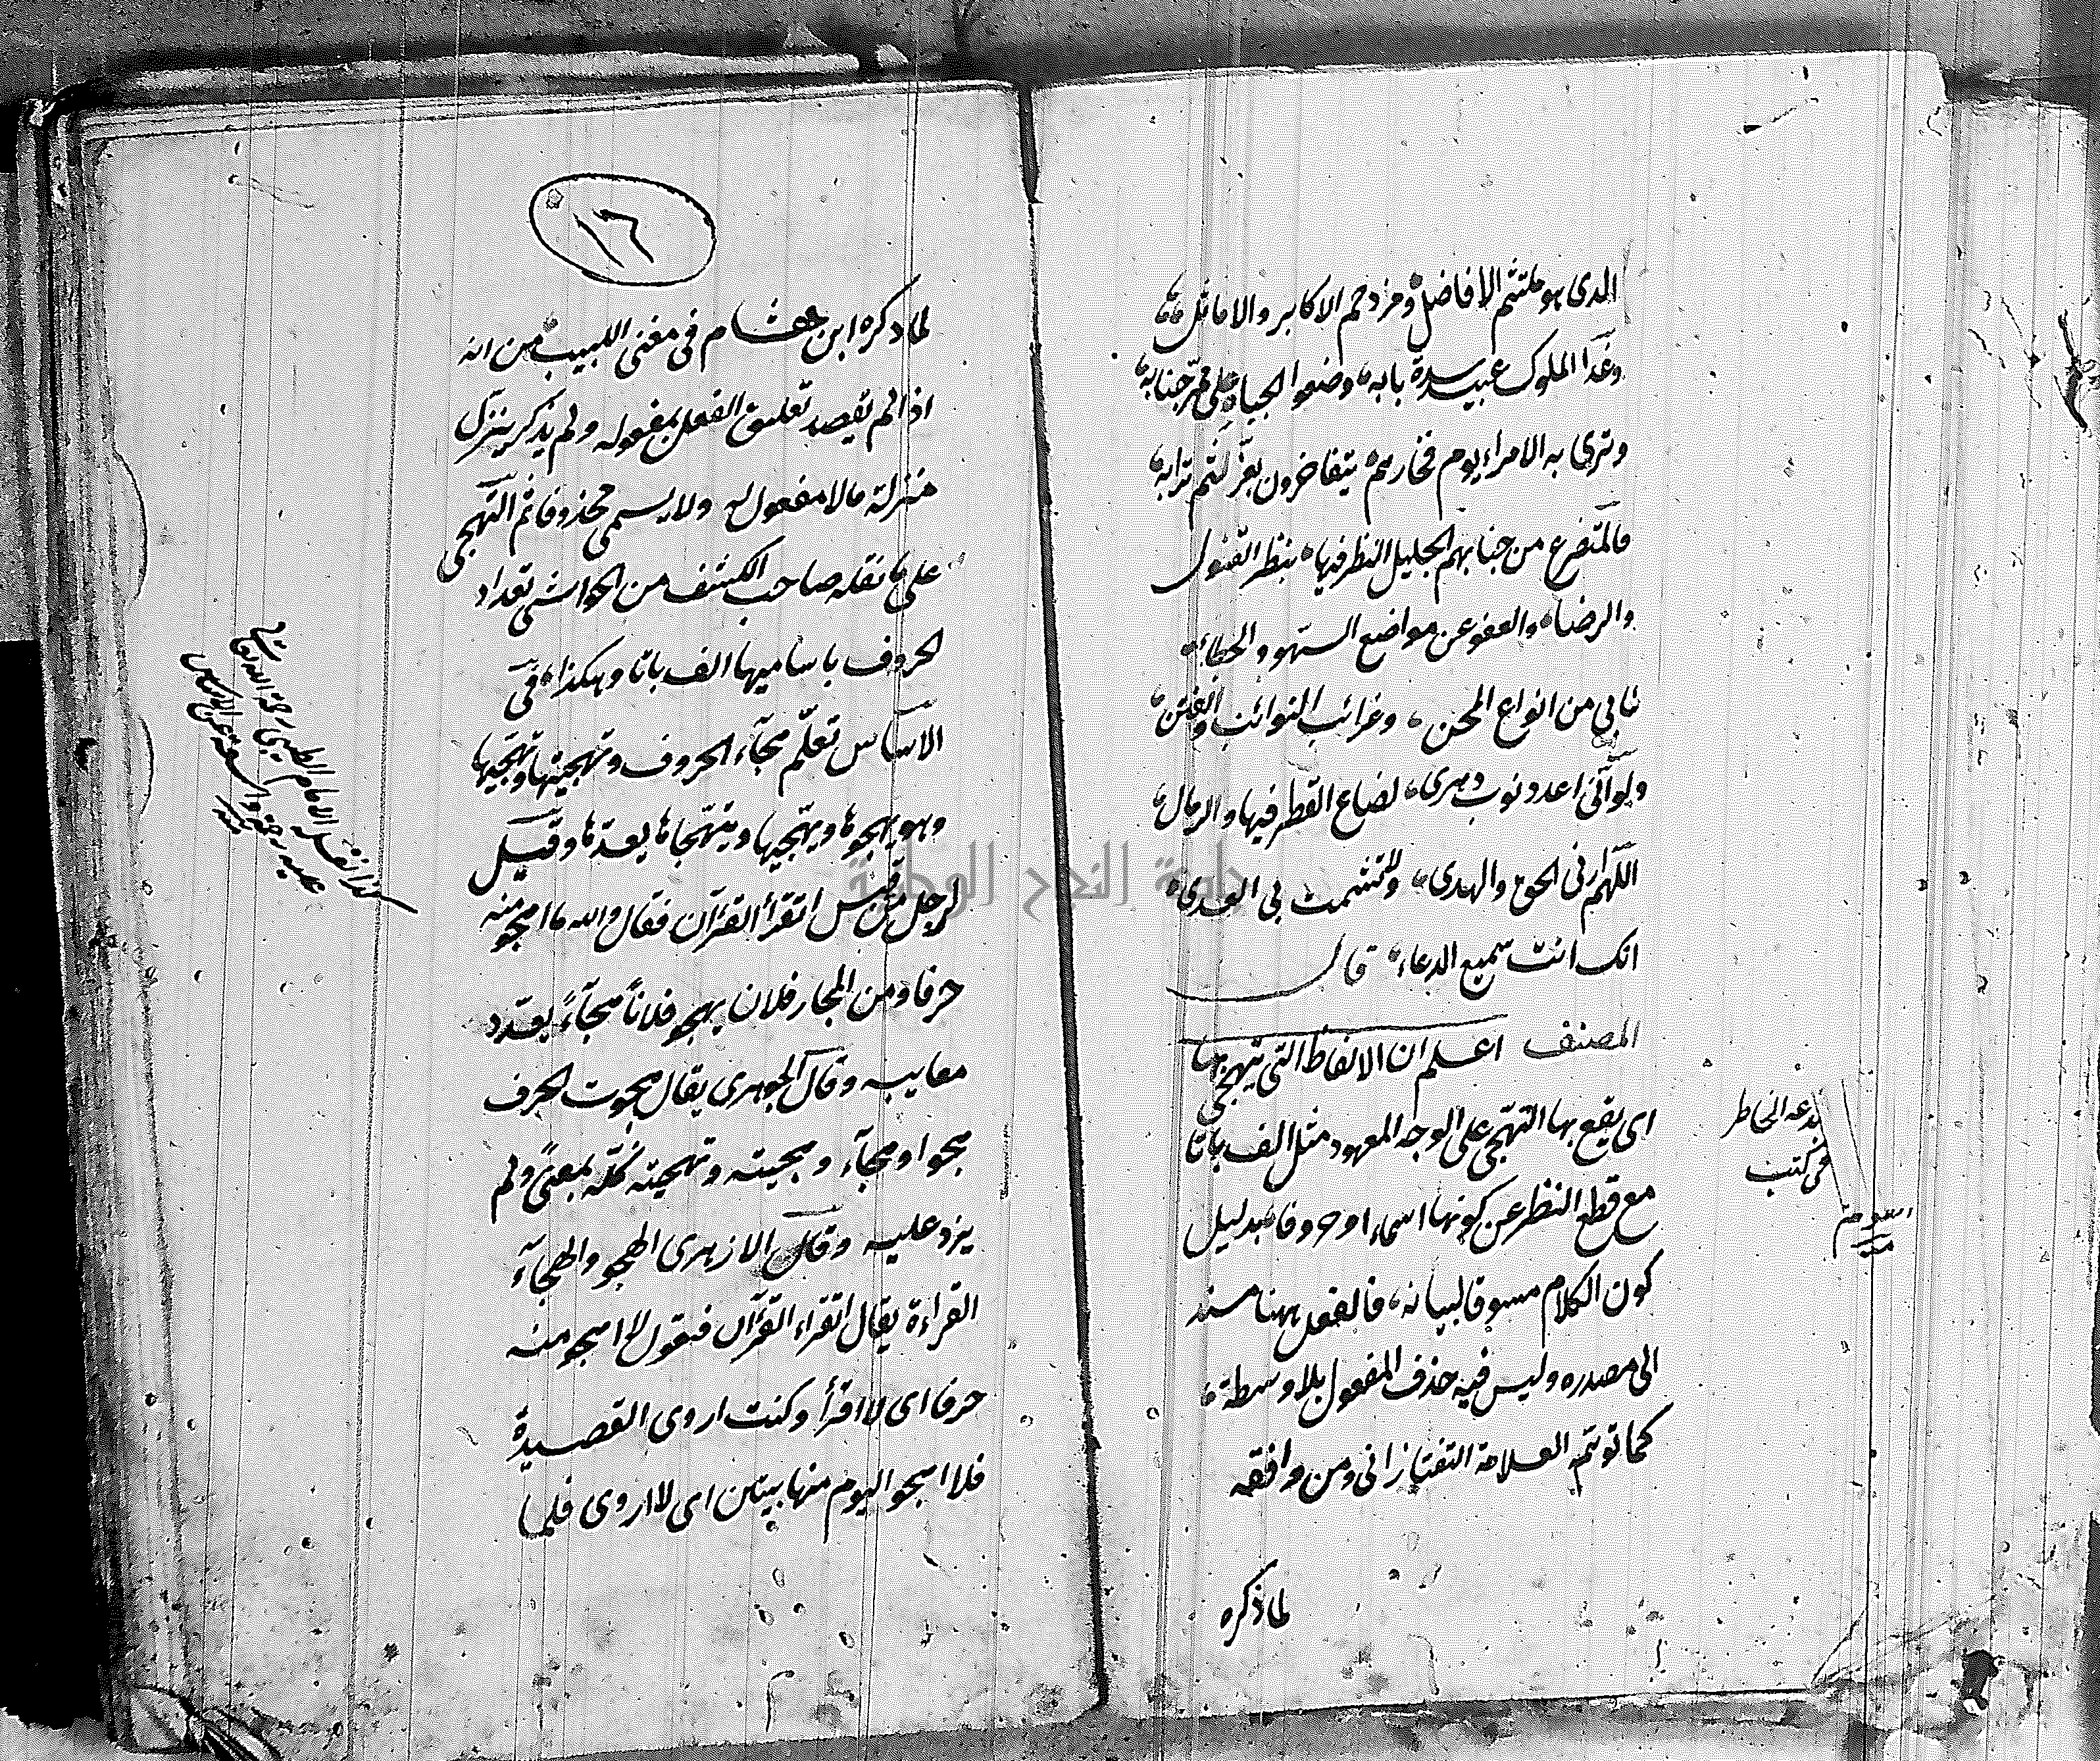 الذى هو ملتثم الافاضل ومزدحم الاكابر والاماثل
وغدا الملوك عبيد سدة بابه وضعوا الجباه على ممرّ جنابه
وترى به الامراء يوم فخارهم يتفاخرون بعزّ لثم ترابه
فالمتضرع من جنابهم الجليل النظر فيها بنظر القبول
والرضاء والعفو عن مواضع السهو والخطاء
نابى من انواع المحن وغرائب النوائب والفتن
ولو آنى اعدد نوب دهرى لضاع القطر فيها والرمال
اللهم ارنى الحق والهدى ولا تشمت بى العدى
انك انت سميع الدعاء قال
المصنف اعلم ان الالفاظ التى يتهجى بها
اى يقع بها التهجّى على الوجه المعهود مثل الف با تا
مع قطع النظر عن كونها اسماء او حروفا بدليل
كون الكلام مسوقا لبيانه فالفعل ههنا مسند
الى مصدره وليس فيه حذف المفعول بلا وسطة
كما توهّم العلامة التفتازانى ومن وافقه
لما ذكره
يدعه الخاطر
فى كتب
١٦
لما ذكره ابن هشام فى مغنى اللبيب من انه
اذا لم يقصد تعليق الفعل بمفعوله ولم يذكر ينزل
منزلة مالا مفعول له ولا يسمى محذوفا ثم التهجى
على ما نقله صاحب الكشف من الحواشى تعداد
الحروف باساميها الف با تا وهكذا فى
الاساس تعلّم هجاء الحروف وتهجيتها وتهجّيها
وهو يهجوها ويهجّيها ويتهجّاها يعدّها وقيل
لرجل من قيس اتقرأ القرآن فقال والله ما اهجو منه
حرفا ومن المجاز فلان يهجو فلاناً هجاءً يعدّد
معايبه وقال الجوهرى يقال هجوت الحرف
هجوا وهجاء وهجيته وتهجيته كلّه بمعنىً ولم
يزد عليه وقال الازهرى الهجو والهجاء
القراءة يقال اتقراء القرآن فتقول لا اهجو منه
حرفا اى لا اقرأ وكنت اروى القصيدة
فلا اهجو اليوم منها بيتين اى لا اروى فلما
كذا نقله الامام الطيبى رحمة الله
جامعة النجاح الوطنية